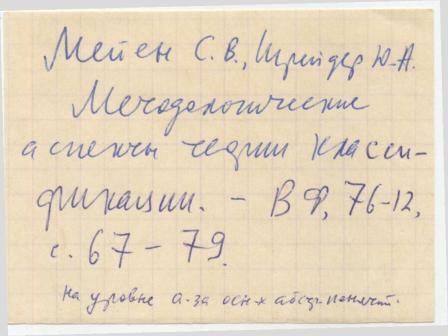 Мейен С.В., Шрейдер Ю.А.
Методологические
аспекты теории класси-
фикации. – ВФ, 76-12,
с. 67 – 79.
на уровне а-за осн-х